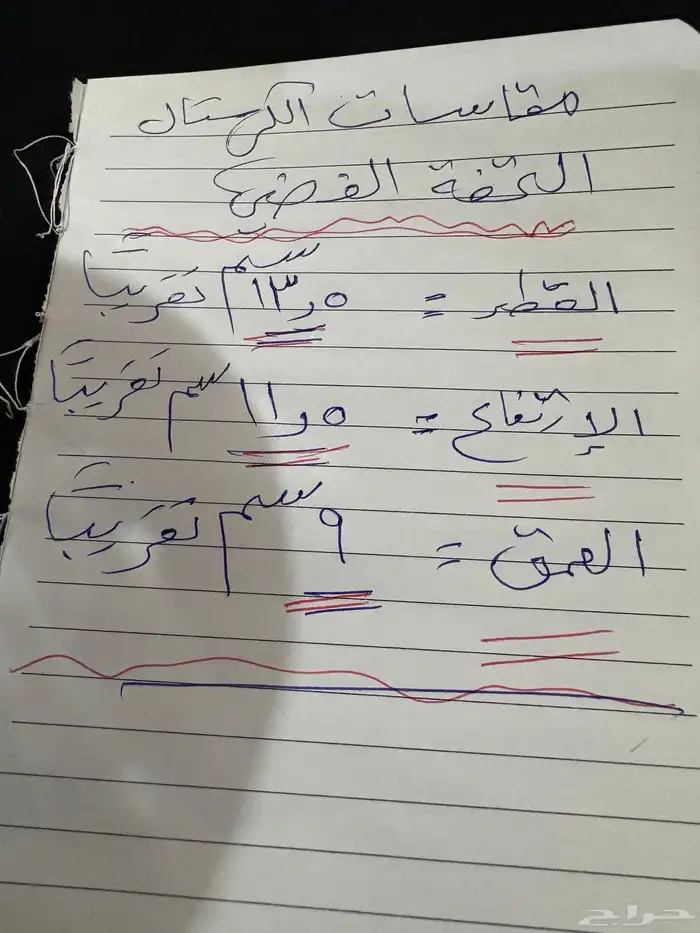 مقاسات الكرستال
التحفة الفضية
القطر = ١٣٫٥ سم تقريبًا
الإرتفاع = ١١٫٥ سم تقريبًا
العمق = ٩ سم تقريبًا
حراج